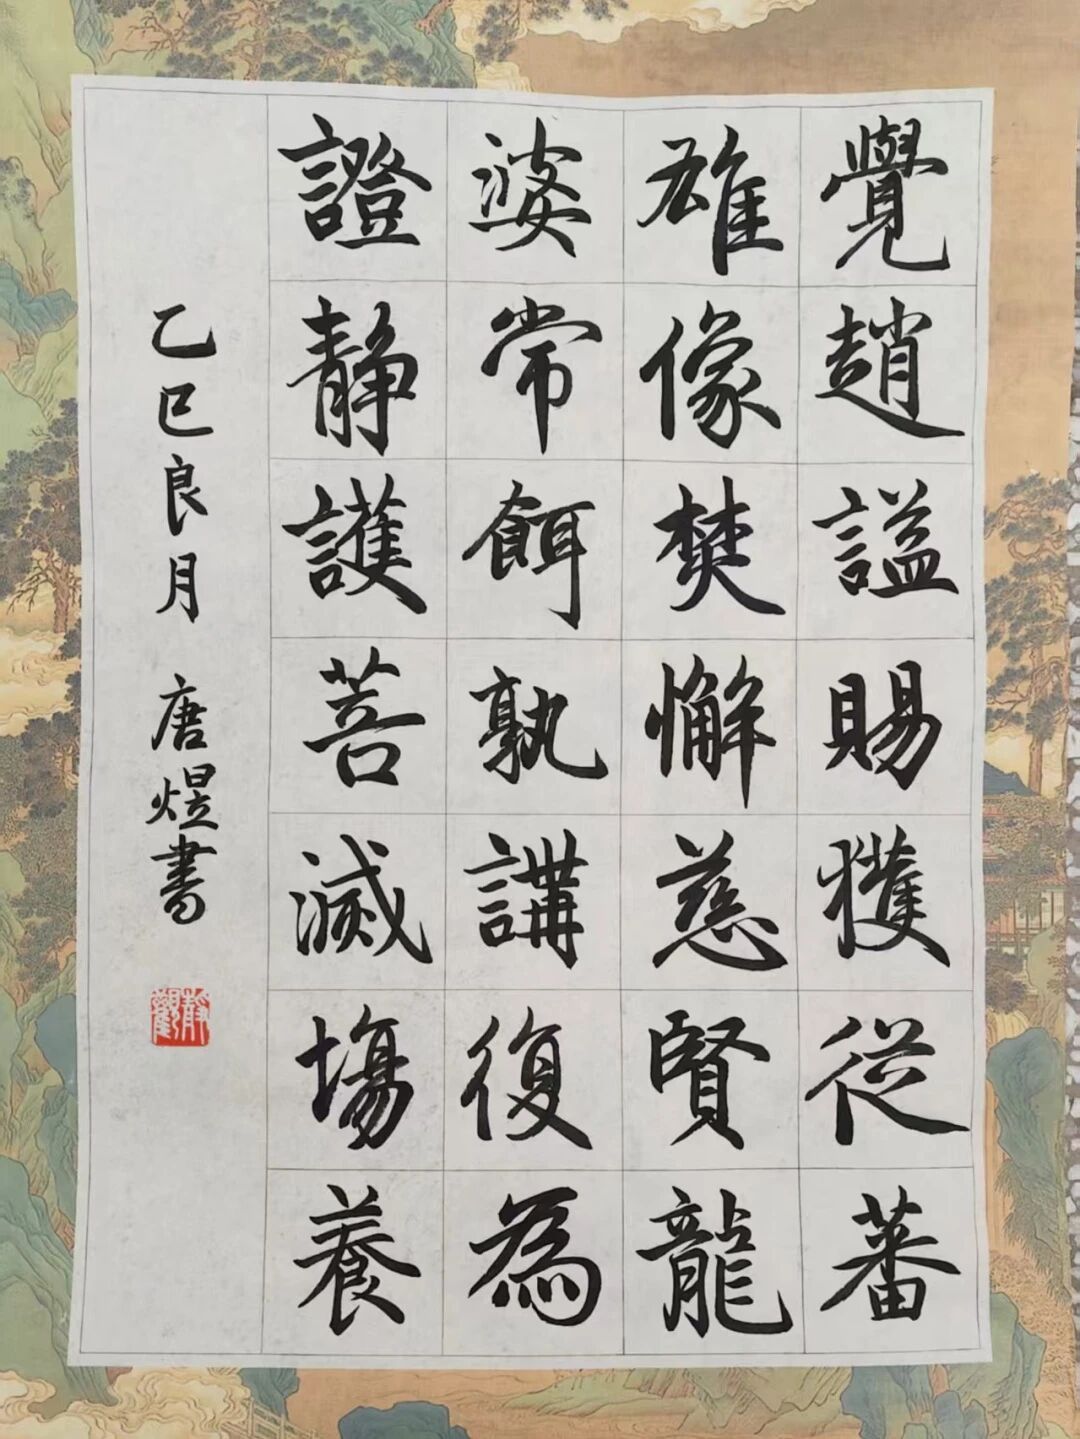 覺趙謚賜獲從蕃
雄像焚懈慈賢龍
婆常餌孰講復為
證靜護菩滅場養
乙巳良月 唐煜書
靜觀